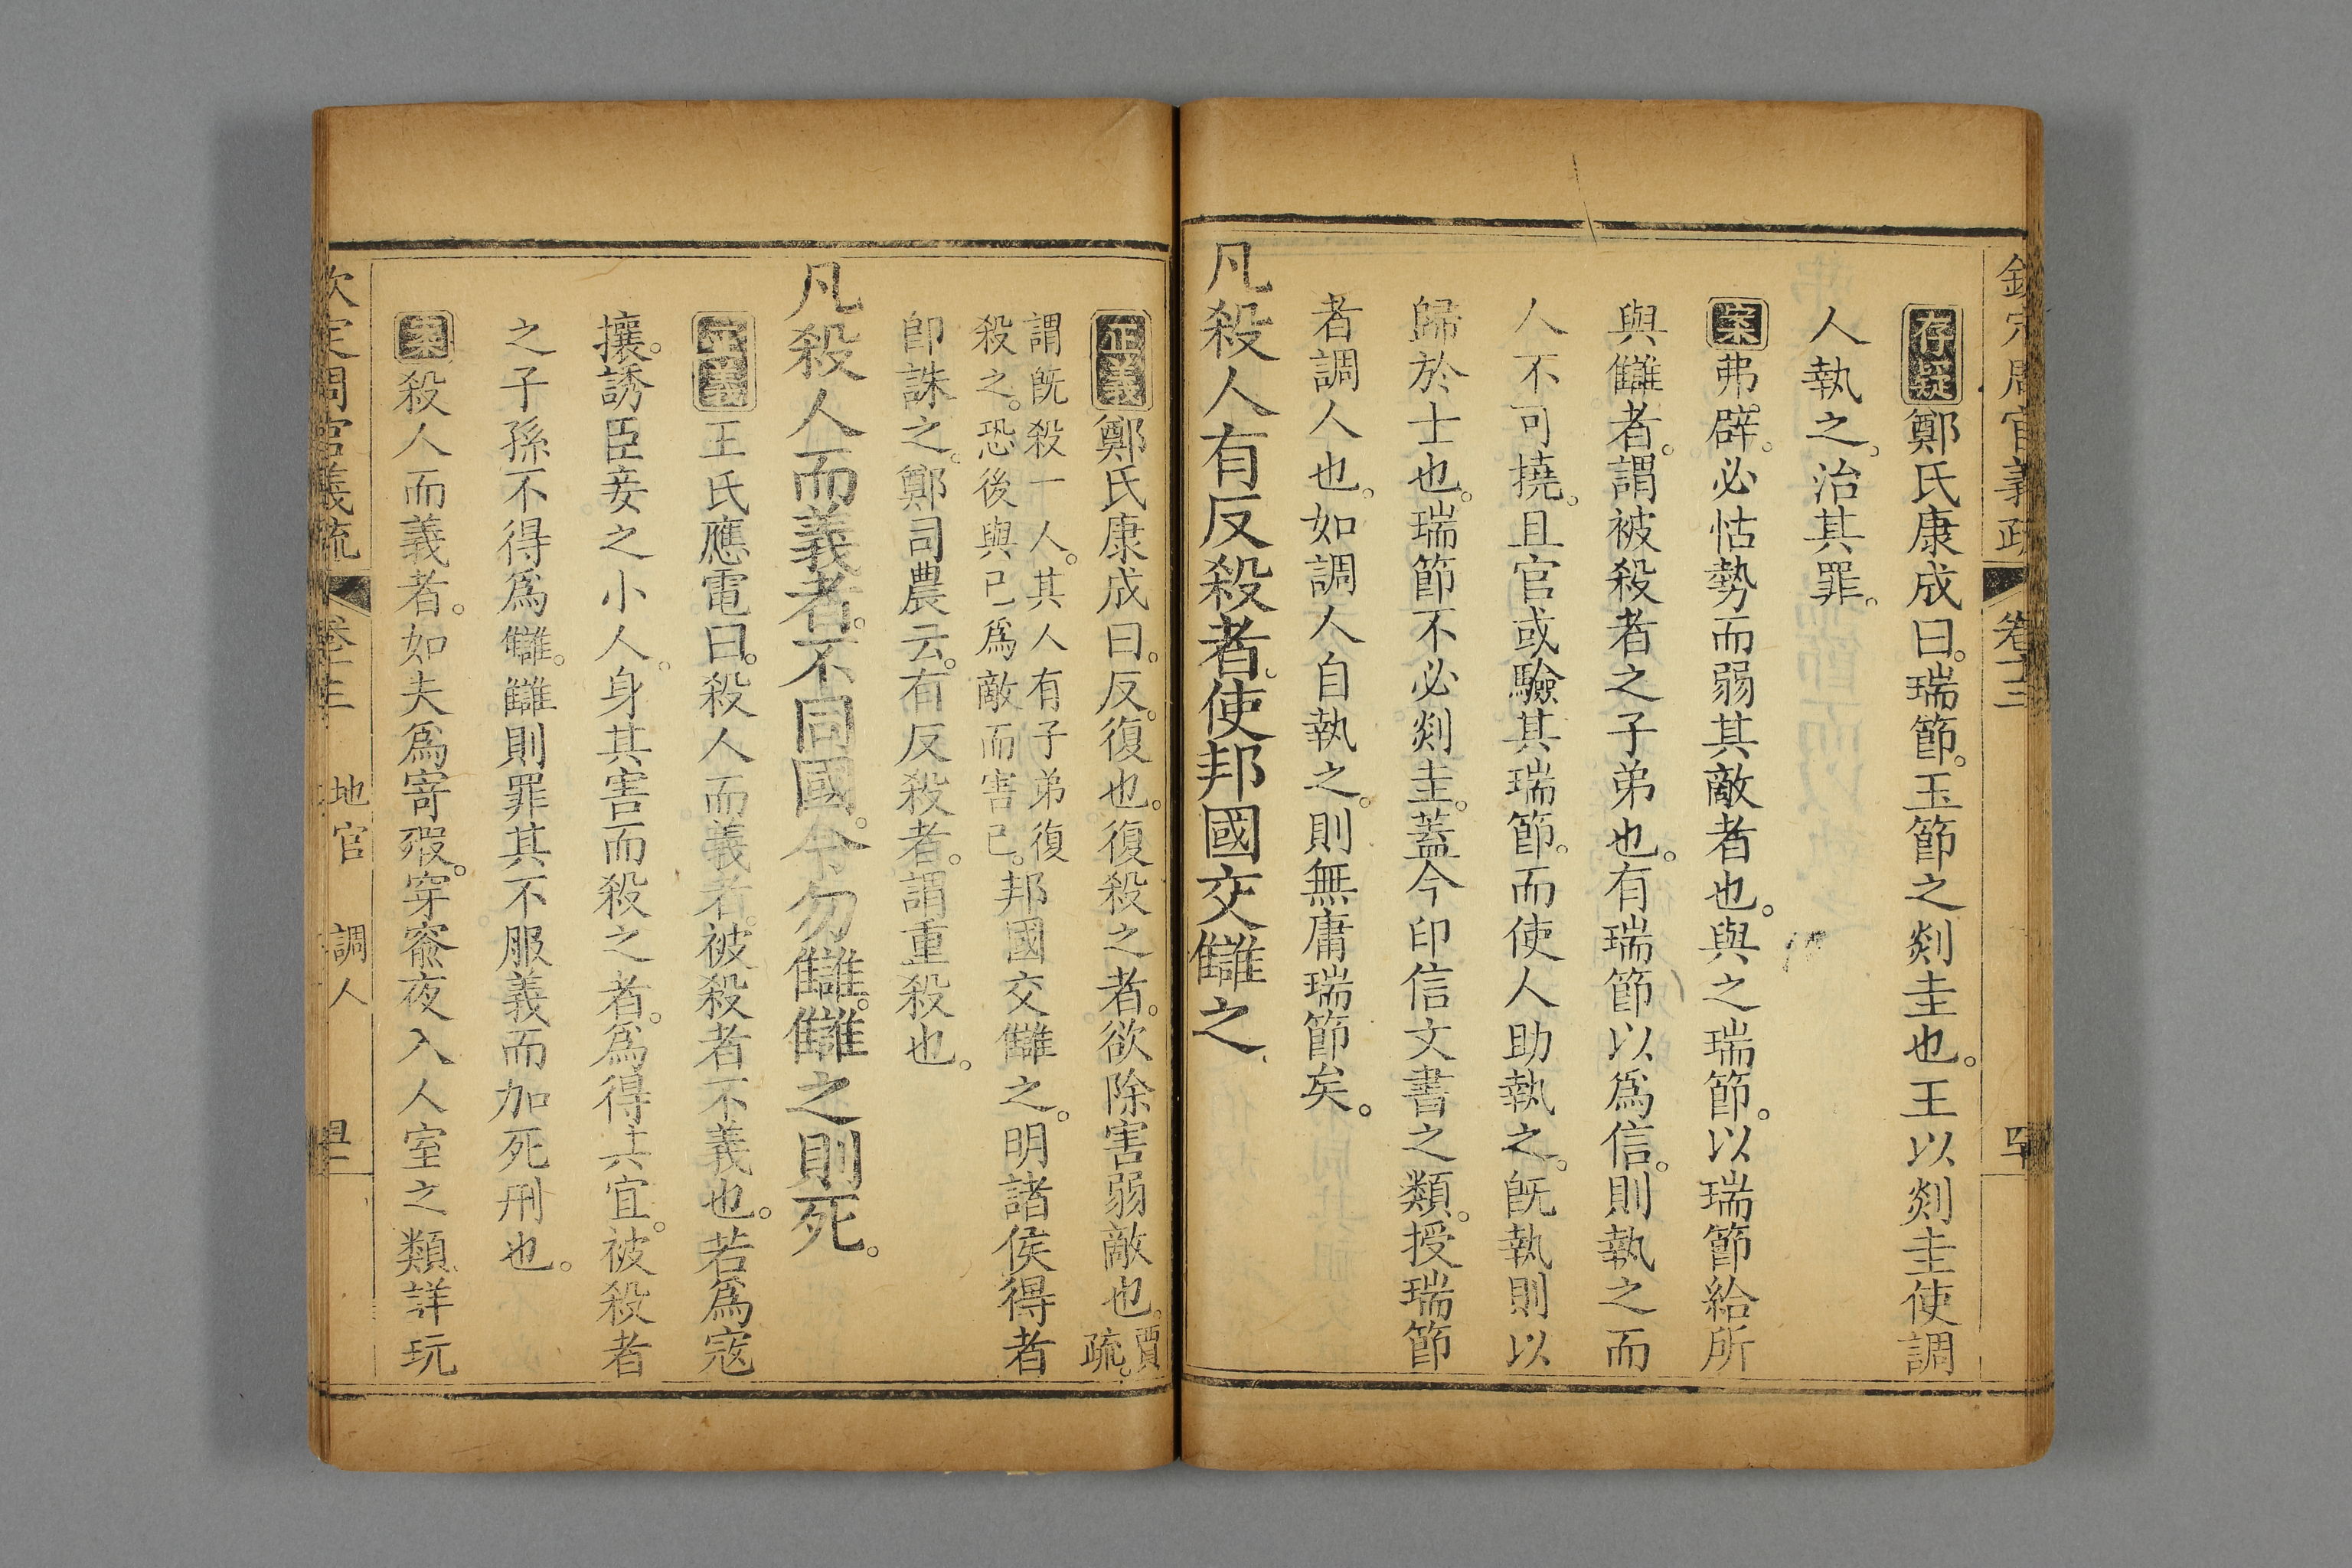 欽定周官義疏 卷十三
存疑鄭氏康成曰。瑞節。玉節之剡圭也。王以剡圭使調
人執之。治其罪。
案弗辟。必怙勢而弱其敵者也。與之瑞節。以瑞節給所
與讎者。謂被殺者之子弟也。有瑞節以爲信。則執之而
人不可撓。且官或驗其瑞節。而使人助執之。旣執則以
歸於士也。瑞節不必剡圭。蓋今印信文書之類。授瑞節
者調人也。如調人自執之。則無庸瑞節矣。
凡殺人有反殺者。使邦國交讎之。
正義鄭氏康成曰。反。復也。復殺之者。欲除害弱敵也。賈疏。
謂旣殺一人。其人有子弟復
殺之。恐後與己爲敵而害己。邦國交讎之。明諸侯得者
卽誅之。鄭司農云。有反殺者。謂重殺也。
凡殺人而義者。不同國。令勿讎。讎之則死。
正義王氏應電曰。殺人而義者。被殺者不義也。若爲寇
攘。誘臣妾之小人。身其害而殺之者。爲得其宜。被殺者
之子孫不得爲讎。讎則罪其不服義而加死刑也。
案殺人而義者。如夫爲寄豭。穿窬夜入人室之類。詳玩
欽定周官義疏 卷十三 地官 調人